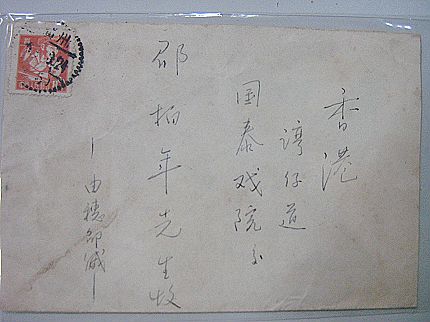 香港
湾仔道
国泰戏院交
邵柏年先生收
由穗邵缄